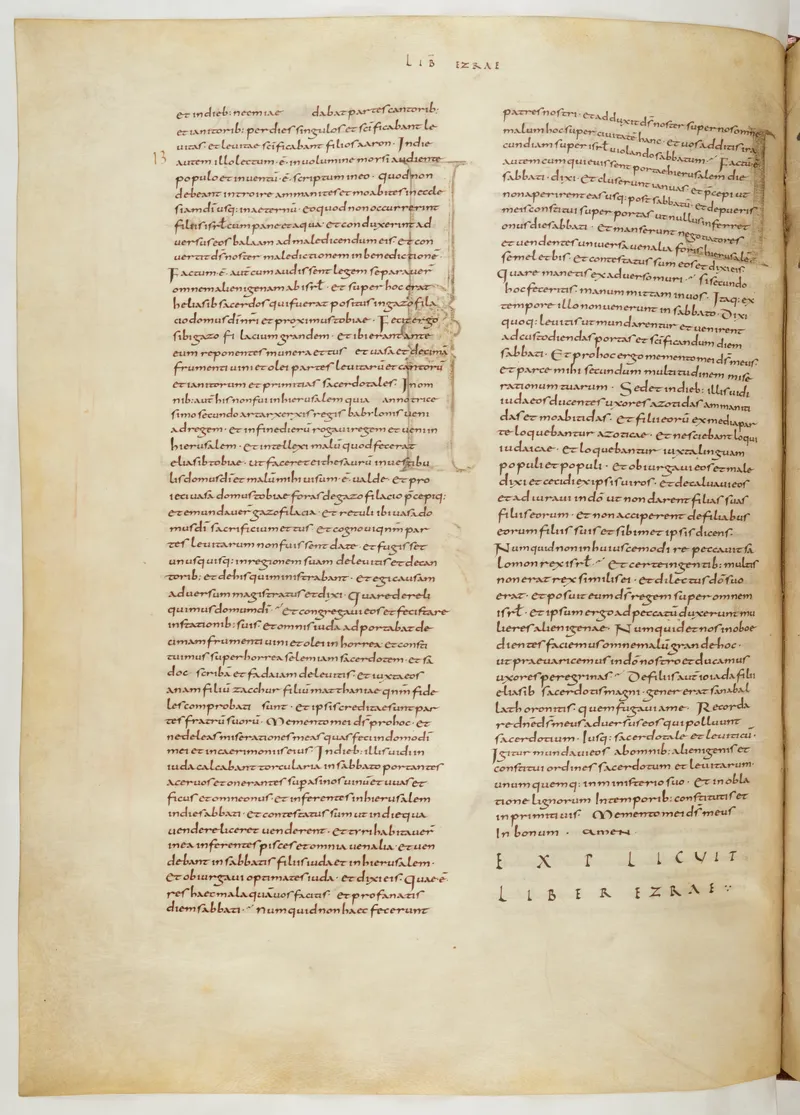 LIB̄ EZRAE
et indieb: neemiae dabat partes cantorib:
et ianitorib: per dies singulos et scīficabant le
uitas et leuitae scīficabant filios aaron. Indie
13
autem illo lectum ·ē· in uolumine morsi audiente
populo et inuentū ·ē· scriptum in eo · quod non
debeant introire ammanites et moabites in eccle
siam dī usq: in aeternū · eo quod non occurrerint
filiis isrl̄ cum pane et aqua · et conduxerint ad
uersus eos balaam ad maledicendum eis · et con
uertit ds̄ noster maledictionem in benedictionē
Factum ·ē· aūt cum audissent legem separauer̄
omnem alienigenam ab isrl̄ · et super hoc erat
heliasib sacerdos qui fuerat positus in gazofila
cio domus dīnr̄i et proximus tobiae · Fecit ergo
sibi gazofilacium grandem · et ibi erant ante
eum reponentes munera et tus et uasa et decimā
frumenti uini et olei partes leuitarū et cantorū
et ianitorum et primitias sacerdotales. In om
nib: aūt his non fui in hierusalem quia anno trice
simo secundo artarxerxis regis babylonis ueni
ad regem · et in fine dierū rogaui regem et ueni in
hierusalem · et intellexi malū quod fecerat
eliasib tobiae · ut faceret ei thesaurū in uestibu
lis domus dī et malū mihi uisum ·ē· ualde · et pro
ieci uasa domus tobiae foras de gazofilacio p̄cepiq:
et emundauer̄ gazofilacia · et retuli ibi uasa do
mus dī sacrificium et tus · et cognoui qnm̄ par
tes leuitarum non fuissent date · et fugisset
unusquisq: in regionem suam de leuitis et decan
torib: et de his qui ministrabant · et egi causam
aduersum magistratus et dixi · Quare dereli
quimus domum dī · et congregaui eos et feci stare
in stationib: suis et omnis iuda adportabat de
cimam frumenti uini et olei in horrea · et consti
tuimus super horrea selemiam sacerdotem · et sa
doc scribā et fadaiam de leuitis et iuxta eos
anam filiū zacchur filiū matthaniae qnm̄ fide
les comprobati sunt · et ipsis creditae sunt par
tes fratrū suorū · Memento mei ds̄ pro hoc · et
ne deleas miserationes meas quas feci in domo dī
mei et in caerimoniis eius · In dieb: illis uidi in
iuda calcabant torcularia in sabbato portantes
aceruos et onerantes sup asinos uinū et uuas et
ficus et omne onus · et inferentes in hierusalem
in die sabbati · et contestatus sum ut in die qua
uendere liceret uenderent · et tirii habitauer̄
in ea inferentes pisces et omnia uenalia · et uen
debant in sabbatis filiis iuda et in hierusalem ·
et obiurgaui optimates iuda · et dixi eis · Quae ·ē·
res haec mala quā uos facitis et profanatis
diem sabbati · numquid non haec fecerunt
patres nostri · et adduxit ds̄ noster super nos omne
malum hoc super ciuitatē hanc · et uos additis ira
cundiam super isrl̄ uiolando sabbatum · Factū ·ē·
autem cum quieuissent portae hierusalem die
sabbati · dixi · et cluserunt ianuas et p̄cepi ut
non aperirent eas usq: post sabbatū · et de pueris
meis constitui super portas ut nullus inferret
onus die sabbati · et manserunt negotiatores
et uendentes uniuersa uenalia foris hierusalē
semel et bis · et contestatus sum eos et dixi eis
Quare manetis ex aduerso muri · si secundo
hoc feceritis manum mittam in uos · Itaq: ex
tempore illo non uenerunt in sabbato · Dixi
quoq: leuitis ut mundarentur et uenirent
ad custodiendas portas et scīficandum diem
sabbati · Et pro hoc ergo memento mei ds̄ meus
et parce mihi secundum multitudinem mise
rationum tuarum · Sed et in dieb: illis uidi
iudaeos ducentes uxores azotidas ammaniti
das et moabitidas · et filii eorū ex media par
te loquebantur azoticae · et nesciebant loqui
iudaicae · et loquebantur iuxta linguam
populi et populi · et obiurgaui eos et male
dixi et cecidi ex ipsis uiros · et decaluaui eos
et adiuraui in dō ut non darent filias suas
filiis eorum · et non acciperent de filiabus
eorum filiis suis et sibimet ipsis dicens ·
Numquid non in huiuscemodi re peccauit sa
lomon rex isrl̄ · et certe in gentib: multis
non erat rex similis ei · et dilectus dō suo
erat · et posuit eum ds̄ regem super omnem
isrl̄ · et ipsum ergo ad peccatū duxerunt mu
lieres alienigenae · Numquid et nos inoboe
dientes faciemus omne malū grande hoc ·
ut praeuaricemus in dō nostro et ducamus
uxores peregrinas · De filiis aūt ioiada filii
eliasib sacerdotis magni gener erat sanabal
lath oronitis quem fugaui a me · Recorda
re dn̄e ds̄ meus aduersus eos qui polluunt
sacerdotium · Iusq: sacerdotale et leuiticū ·
Igitur mundaui eos ab omnib: alienigenis et
constitui ordines sacerdotum et leuitarum ·
unumquemq: in ministerio suo · Et in obla
tione lignorum in temporib: constitutis et
in primitiuis Memento mei ds̄ meus
In bonum · AMEN ·
EXPLICUIT
LIBER EZRAE